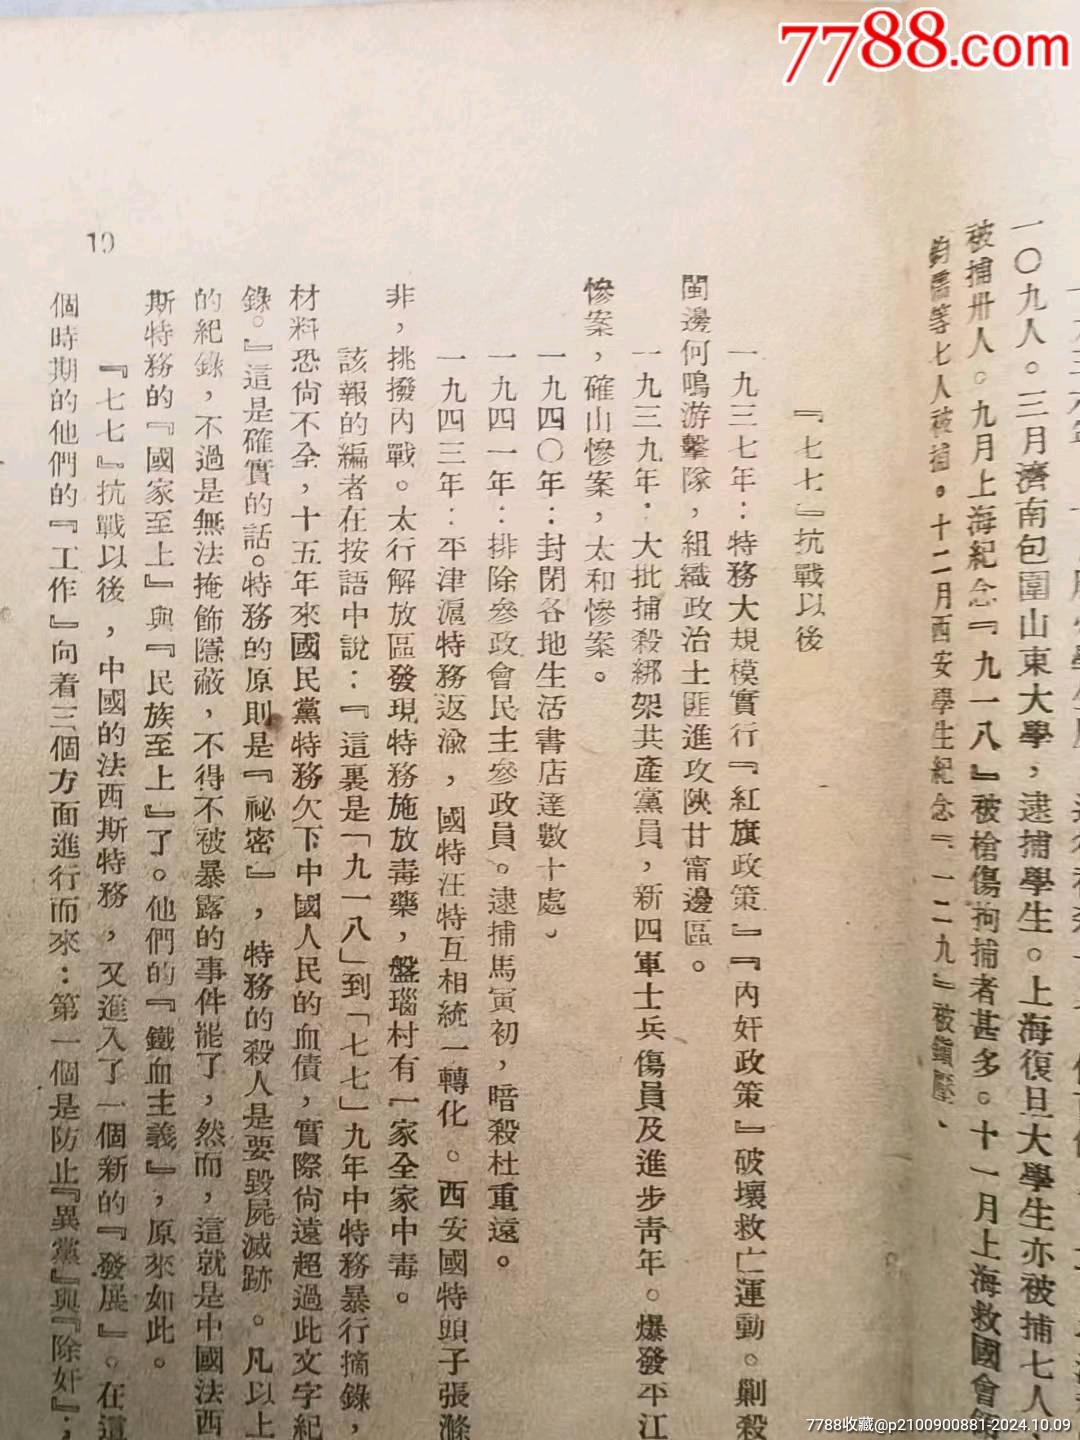 7788.com
一〇九人。三月濟南包圍山東大學，逮捕學生。上海復旦大學生亦被捕七人、
被捕卅人。九月上海紀念『九一八』被槍傷拘捕者甚多。十一月上海救國會領
鈞儒等七人被捕。十二月西安學生紀念『一二九』被鎮壓、
『七七』抗戰以後
一九三七年：特務大規模實行『紅旗政策』『內奸政策』破壞救亡運動。剿殺
閩邊何鳴游擊隊，組織政治土匪進攻陝甘甯邊區。
一九三九年．大批捕殺綁架共產黨員，新四軍士兵傷員及進步靑年。爆發平江
慘案，確山慘案，太和慘案。
一九四〇年：封閉各地生活書店達數十處。
一九四一年：排除參政會民主參政員。逮捕馬寅初，暗殺杜重遠。
一九四三年：平津滬特務返渝，國特汪特互相統一轉化。西安國特頭子張滌
非，挑撥內戰。太行解放區發現特務施放毒藥，盤瑙村有一家全家中毒。
該報的編者在按語中說：『這裏是「九一八」到「七七」九年中特務暴行摘錄，
材料恐尙不全，十五年來國民黨特務欠下中國人民的血債，實際尙遠超過此文字紀
錄。』這是確實的話。特務的原則是『祕密』，特務的殺人是要毀屍滅跡。凡以上
的紀錄，不過是無法掩飾隱蔽，不得不被暴露的事件罷了，然而，這就是中國法西
斯特務的『國家至上』與『民族至上』了。他們的『鐵血主義』，原來如此。
『七七』抗戰以後，中國的法西斯特務，又進入了一個新的『發展』。在這
個時期的他們的『工作』向着三個方面進行而來：第一個是防止『異黨』與『除奸』；
10
7788收藏@p2100900881-2024.10.09